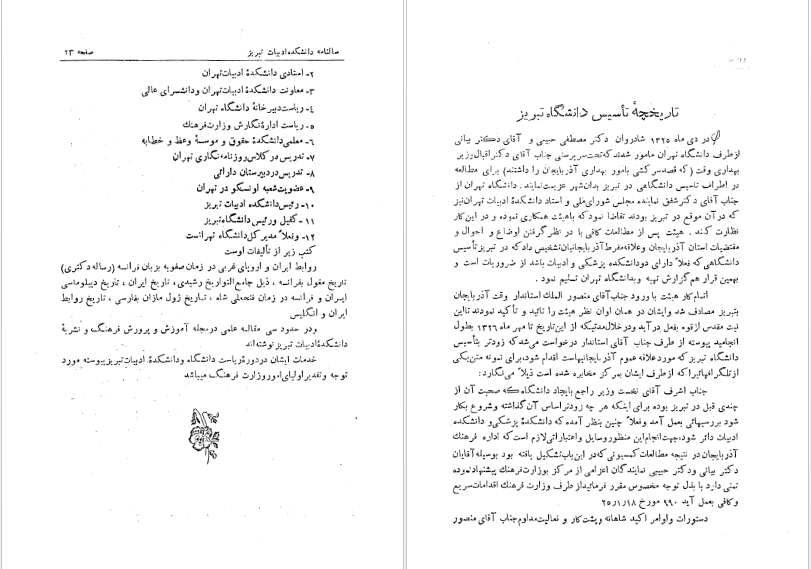 صفحه ۲۳ سالنامه دانشکده ادبیات تبریز
۲- استادی دانشکدهٔ ادبیات تهران
۳- معاونت دانشکدهٔ ادبیات تهران ودانشسرای عالی
۴- ریاست دبیرخانهٔ دانشگاه تهران
۵- ریاست ادارهٔ نگارش وزارت فرهنگ
۶- معلمی دانشکدهٔ حقوق و موسسهٔ وعظ و خطابه
۷- تدریس در کلاس روزنامه نگاری تهران
۸- تدریس در دبیرستان دارائی
۹- عضویت شعبه اونسکو در تهران
۱۰- رئیس دانشکده ادبیات تبریز
۱۱- کفیل ورئیس دانشگاه تبریز
۱۲- وفعلاً مدیر کل دانشگاه تهرانست
کتب زیر از تألیفات اوست
روابط ایران و اروپای غربی در زمان صفویه بزبان فرانسه (رساله دکتری)
تاریخ مغول بفرانسه ، ذیل جامع التواریخ رشیدی ، تاریخ ایران ، تاریخ دیپلوماسی
ایران و فرانسه در زمان فتحعلی شاه ، تاریخ ژول مازان بفارسی ، تاریخ روابط
ایران و انگلیس
ودر حدود سی مقاله علمی در مجله آموزش و پرورش فرهنگ و نشریهٔ
دانشکدهٔ ادبیات تبریز نوشته اند
خدمات ایشان در دورهٔ ریاست دانشگاه ودانشکدهٔ ادبیات تبریز پیوسته مورد
توجه وتقدیر اولیای امور وزارت فرهنگ میباشد
تاریخچهٔ تأسیس دانشگاه تبریز
در دی ماه ۱۳۲۵ شادروان دکتر مصطفی حبیبی و آقای دکتر بیانی
از طرف دانشگاه تهران مامور شدند که تحت سرپرستی جناب آقای دکتر اقبال وزیر
بهداری وقت (که قصد سرکشی بامور بهداری آذربایجان را داشتند) برای مطالعه
در اطراف تاسیس دانشگاهی در تبریز بدان شهر عزیمت نمایند . دانشگاه تهران از
جناب آقای دکتر شفق نماینده مجلس شورای ملی و استاد دانشکدهٔ ادبیات تهران نیز
که در آن موقع در تبریز بودند تقاضا نمود که باهیئت همکاری نموده و در این کار
نظارت کند . هیئت پس از مطالعات کافی با در نظر گرفتن اوضاع و احوال و
مقتضیات استان آذربایجان وعلاقه مفرط آذربایجانیان تشخیص داد که در تبریز تأسیس
دانشگاهی که فعلاً دارای دو دانشکده پزشکی و ادبیات باشد از ضروریات است و
بهمین قرار هم گزارش تهیه و بدانشگاه تهران تسلیم نمود .
اتمام کار هیئت با ورود جناب آقای منصور الملک استاندار وقت آذربایجان
بتبریز مصادف شد و ایشان در همان اوان نظر هیئت را تائید و تأکید نمودند تا این
نیت مقدس از قوه بفعل در آید و در خلال مدتیکه از این تاریخ تا مهر ماه ۱۳۲۶ بطول
انجامید پیوسته از طرف جناب آقای استاندار درخواست می شد که زودتر بتأسیس
دانشگاه تبریز که مورد علاقه عموم آذربایجانیهاست اقدام شود ، برای نمونه متن یکی
از تلگرافهائیرا که از طرف ایشان بمرکز مخابره شده است ذیلاً می نگارد :
جناب اشرف آقای نخست وزیر راجع بایجاد دانشگاه که صحبت آن از
چندی قبل در تبریز بوده برای اینکه هر چه زودتر اساس آن گذاشته و شروع بکار
شود بررسیهائی بعمل آمد وفعلاً چنین بنظر آمده که دانشکدهٔ پزشکی و دانشکده
ادبیات دائر شود ، جهت انجام این منظور وسایل و اعتباراتی لازم است که اداره فرهنگ
آذربایجان در نتیجه مطالعات کمسیونی که در این باب تشکیل یافته بود بوسیله آقایان
دکتر بیانی و دکتر حبیبی نمایندگان اعزامی از مرکز بوزارت فرهنگ پیشنهاد نموده
تمنی دارد با بذل توجه مخصوص مقرر فرمائید از طرف وزارت فرهنگ اقدامات سریع
وکافی بعمل آید ۹۹۰ مورخ ۲۵٫۱٫۱۸
دستورات و اوامر اکید شاهانه و پشت کار و فعالیت مداوم جناب آقای منصور